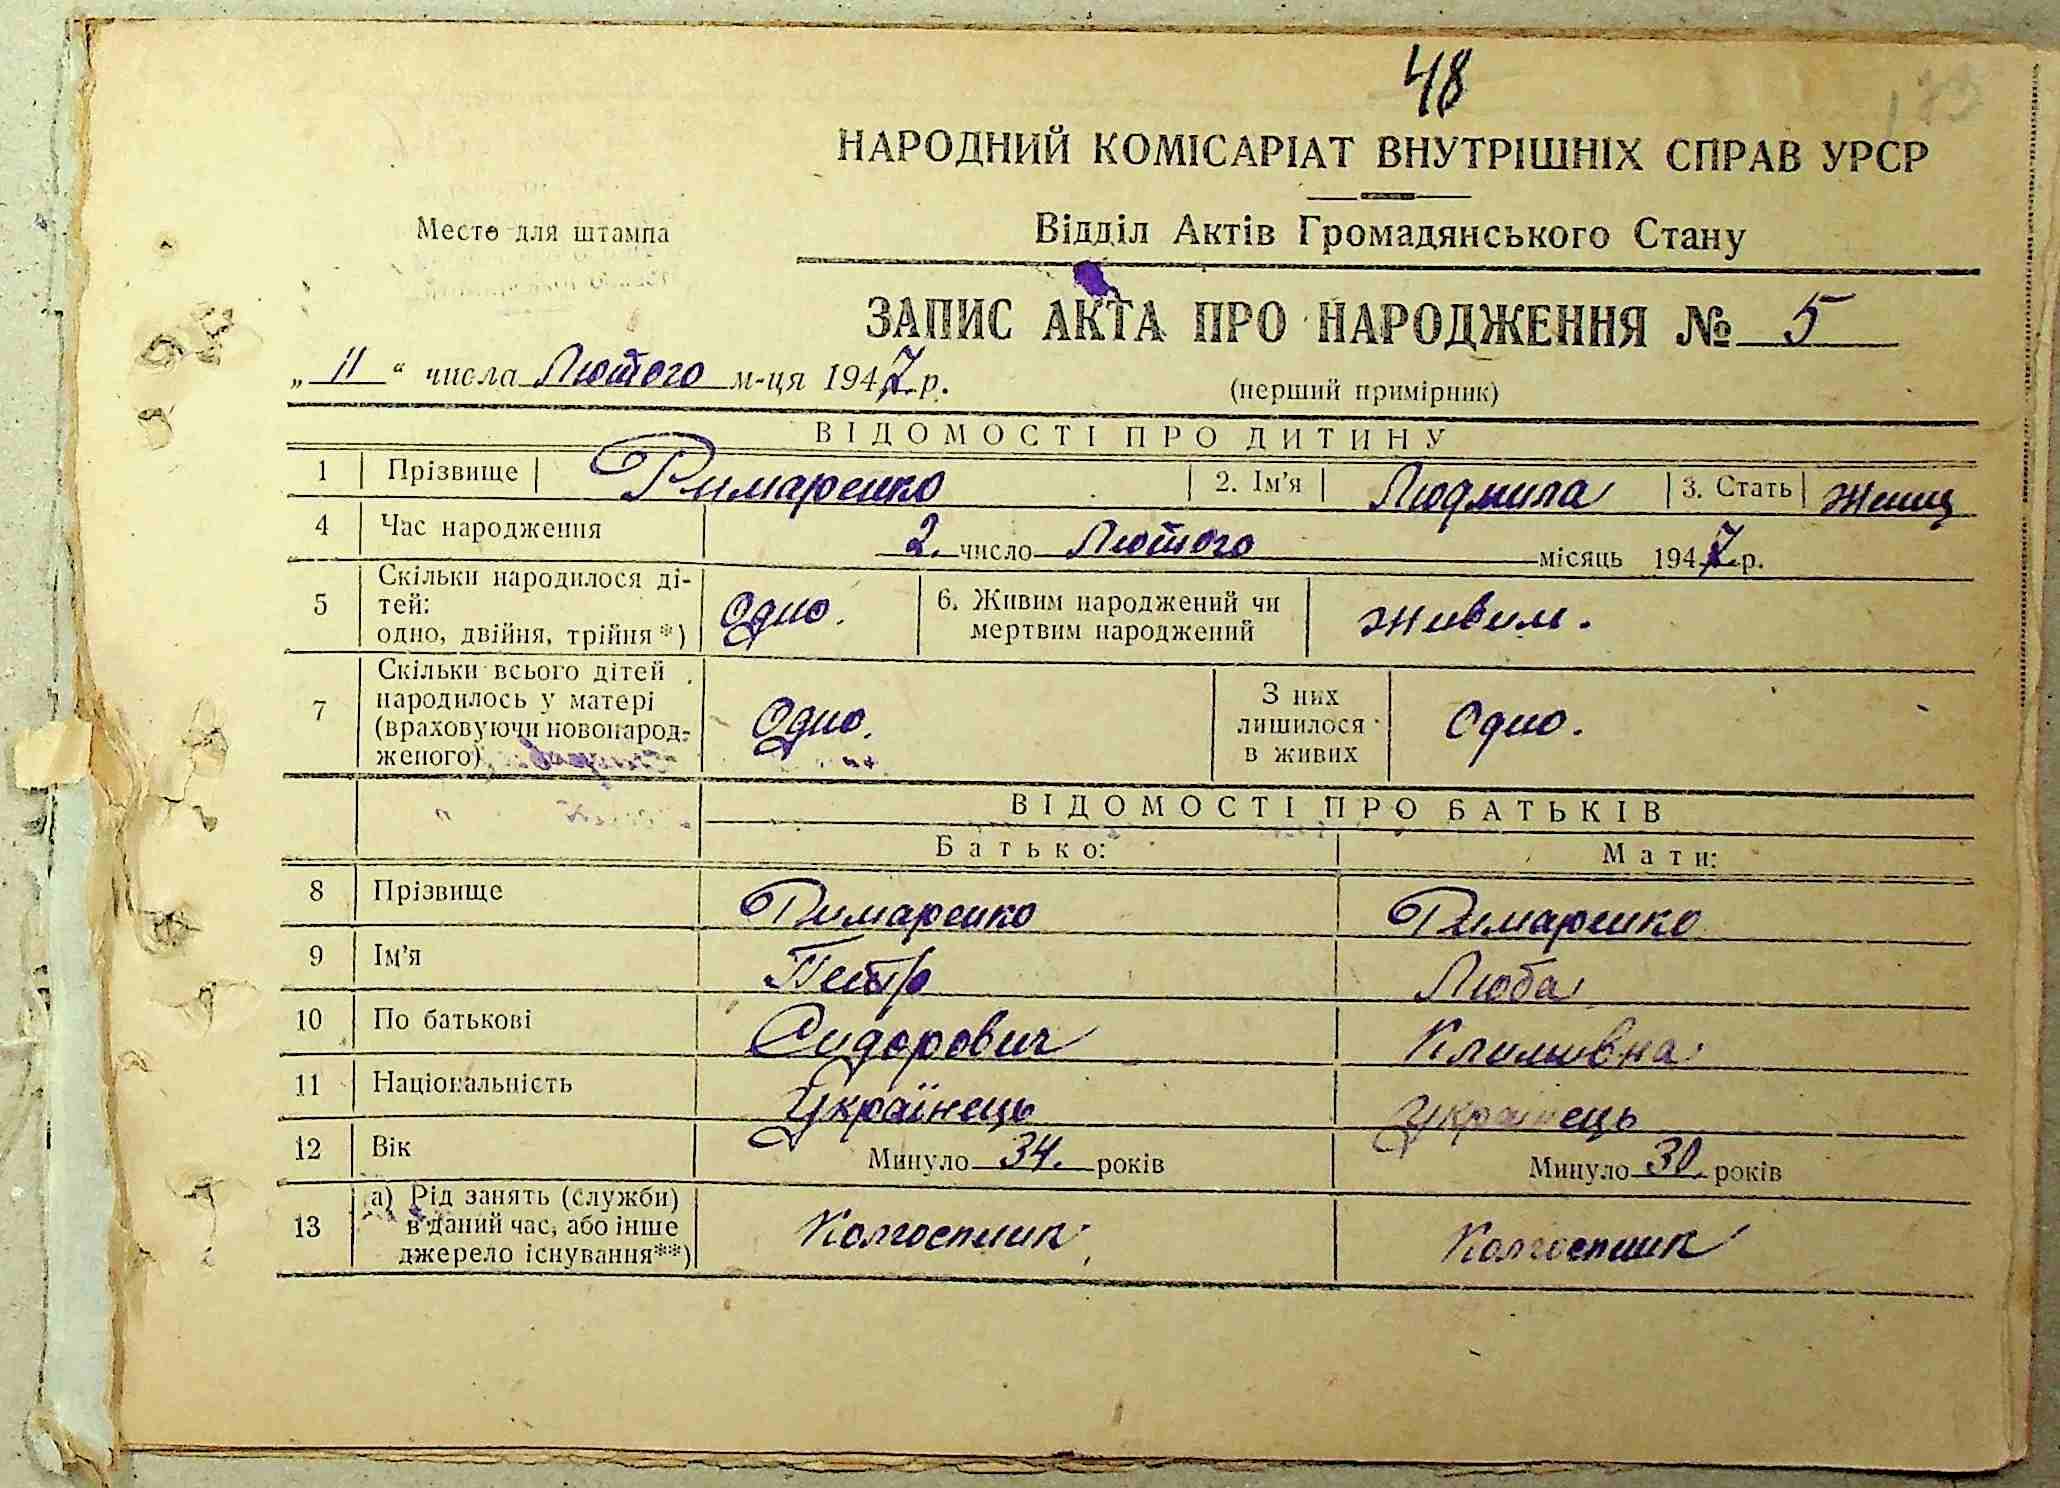 48
НАРОДНИЙ КОМІСАРІАТ ВНУТРІШНІХ СПРАВ УРСР
Место для штампа
Відділ Актів Громадянського Стану
ЗАПИС АКТА ПРО НАРОДЖЕННЯ № 5
„ 11 “ числа Лютого м-ця 1947 р.
(перший примірник)
ВІДОМОСТІ ПРО ДИТИНУ
1 Прізвище Римаренко 2. Ім'я Людмила 3. Стать Жінщ
4 Час народження 2. число Лютого місяць 1947 р.
5 Скільки народилося ді-
тей:
одно, двійня, трійня*) Одно.
6. Живим народжений чи
мертвим народжений живим.
7 Скільки всього дітей
народилось у матері
(враховуючи новонарод-
женого) Одно.
З них
лишилося
в живих Одно.
ВІДОМОСТІ ПРО БАТЬКІВ
Батько: Мати:
8 Прізвище Римаренко Римаренко
9 Ім'я Петр Люба
10 По батькові Сидорович Климивна
11 Національність Українець Українець
12 Вік Минуло 34. років Минуло 30 років
13 а) Рід занять (служби)
в даний час, або інше
джерело існування**) Колгоспник Колгоспник